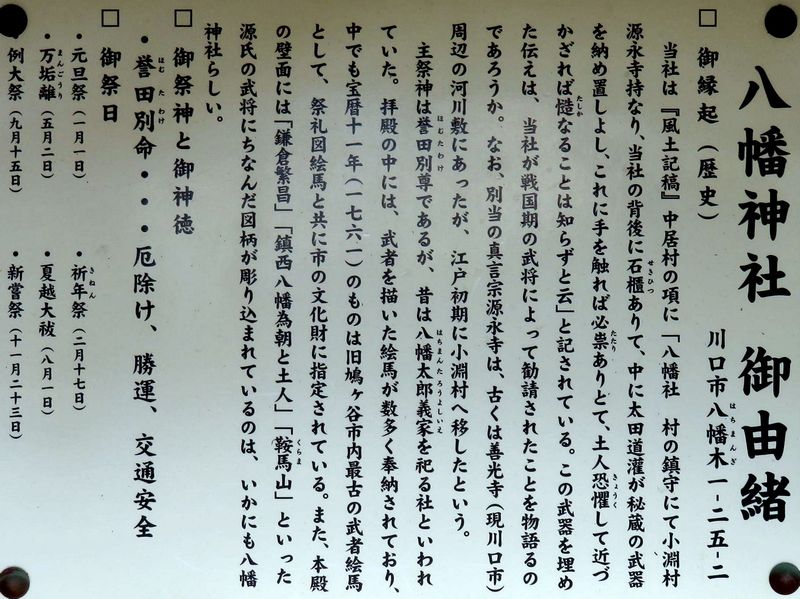 八幡神社 御由緒
川口市八幡木一-二五-二
□ 御縁起(歴史)
当社は『風土記稿』中居村の項に「八幡社 村の鎮守にて小淵村
源永寺持なり、当社の背後に石櫃ありて、中に太田道灌が秘蔵の武器
を納め置しよし、これに手を触れば必祟ありとて、土人恐懼して近づ
かざれば慥なることは知らずと云」と記されている。この武器を埋め
た伝えは、当社が戦国期の武将によって勧請されたことを物語るの
であろうか。なお、別当の真言宗源永寺は、古くは善光寺(現川口市)
周辺の河川敷にあったが、江戸初期に小淵村へ移したという。
主祭神は誉田別尊であるが、昔は八幡太郎義家を祀る社といわれ
ていた。拝殿の中には、武者を描いた絵馬が数多く奉納されており、
中でも宝暦十一年(一七六一)のものは旧鳩ヶ谷市内最古の武者絵馬
として、祭礼図絵馬と共に市の文化財に指定されている。また、本殿
の壁面には「鎌倉繁昌」「鎮西八幡為朝と土人」「鞍馬山」といった
源氏の武将にちなんだ図柄が彫り込まれているのは、いかにも八幡
神社らしい。
□ 御祭神と御神徳
・誉田別命・・・厄除け、勝運、交通安全
□ 御祭日
・元旦祭(一月一日) ・祈年祭(二月十七日)
・万垢離(五月二日) ・夏越大祓(八月一日)
・例大祭(九月十五日) ・新嘗祭(十一月二十三日)